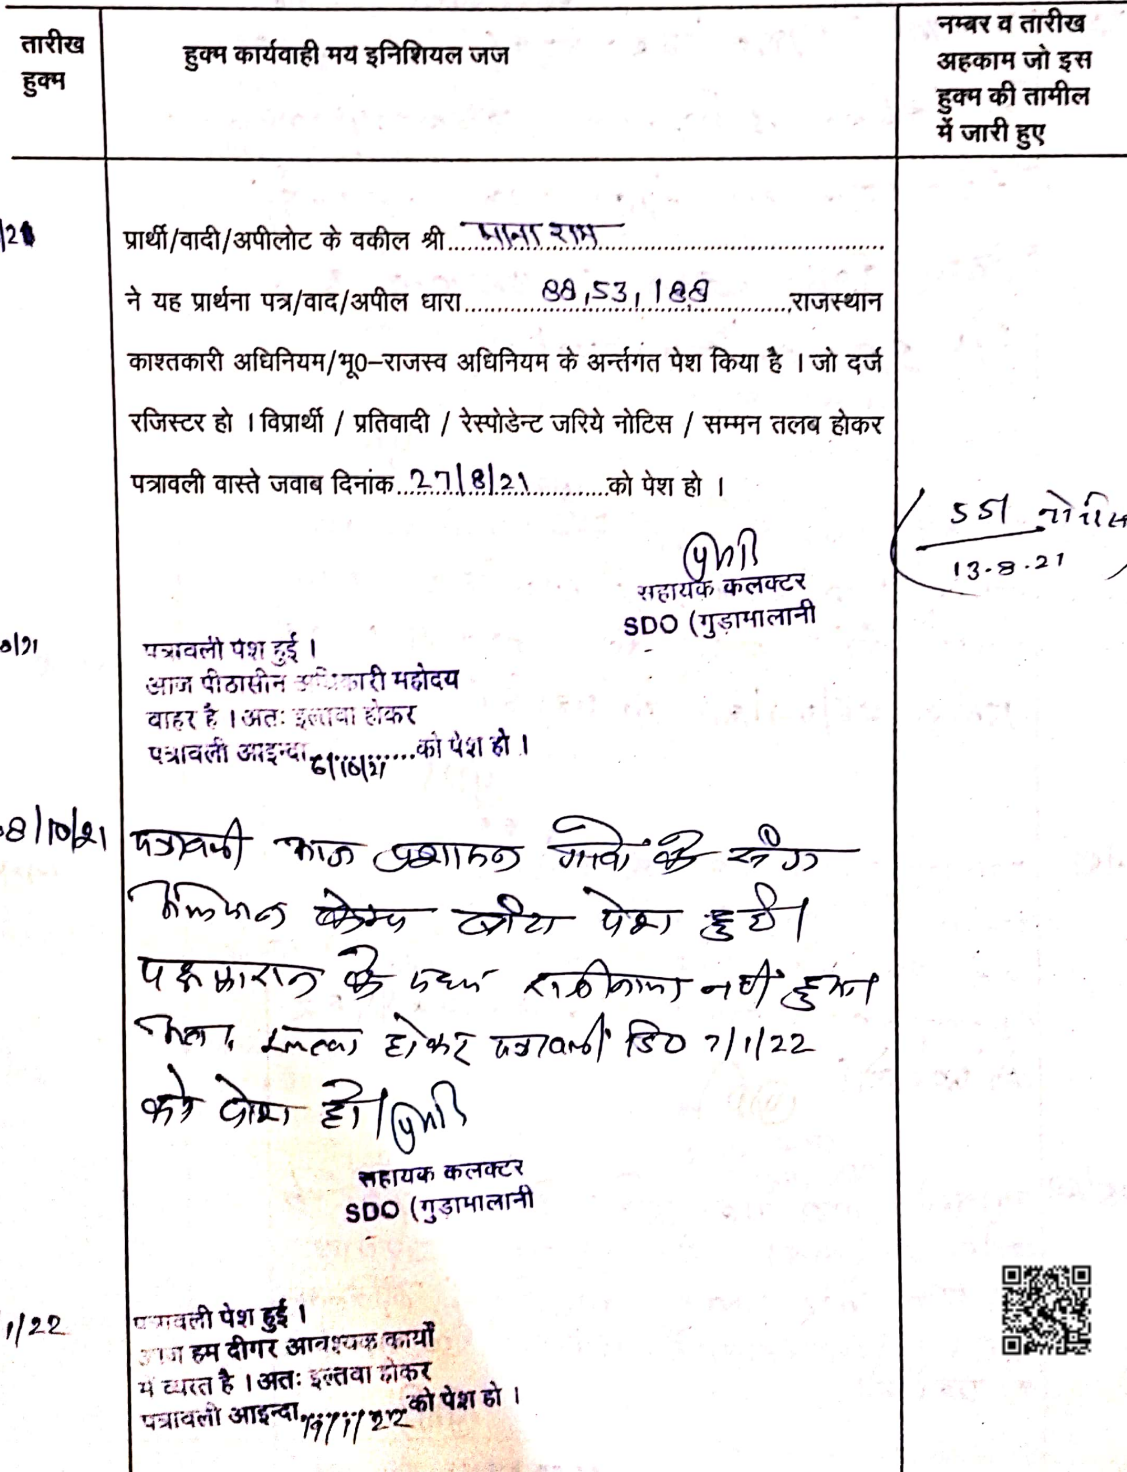 तारीख
हुक्म
हुक्म कार्यवाही मय इनिशियल जज
नम्बर व तारीख
अहकाम जो इस
हुक्म की तामील
में जारी हुए
/21
प्रार्थी/वादी/अपीलोट के वकील श्री....माना राम....
ने यह प्रार्थना पत्र/वाद/अपील धारा....88,53,188....राजस्थान
काश्तकारी अधिनियम/भू0–राजस्व अधिनियम के अर्न्तगत पेश किया है । जो दर्ज
रजिस्टर हो । विप्रार्थी / प्रतिवादी / रेस्पोडेन्ट जरिये नोटिस / सम्मन तलब होकर
पत्रावली वास्ते जवाब दिनांक...27/8/21....को पेश हो ।
नोटिस
13.8.21
सहायक कलक्टर
SDO (गुड़ामालानी
/21
पत्रावली पेश हुई ।
आज पीठासीन अधिकारी महोदय
बाहर है । अतः इलतवा होकर
पत्रावली आइन्दा.........को पेश हो ।
8/10/21
पत्रावली आज प्रशासन गांवो के संग
केम्प पेश हुई।
पक्षकारान के मध्य राजीनामा नहीं हुआ।
होकर पत्रावली दि0 7/1/22
को पेश हो।
सहायक कलक्टर
SDO (गुड़ामालानी
1/22
पत्रावली पेश हुई ।
आज हम दीगर आवश्यक कार्यो
में व्यस्त है । अतः इल्तवा होकर
पत्रावली आइन्दा.........को पेश हो ।